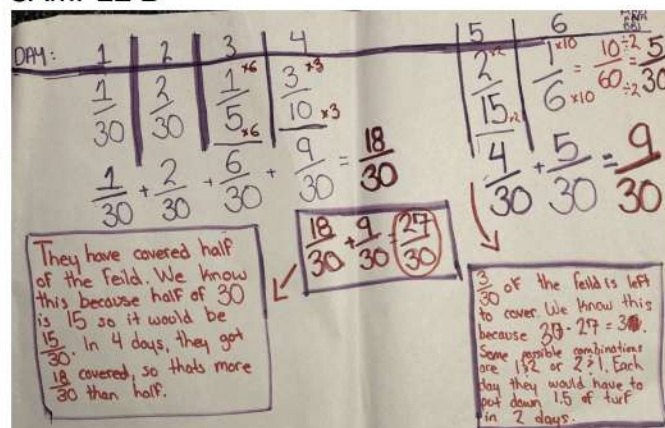 DAY: 1 2 3 4 5 6
1/30 2/30 1/5 ×6 ×6 3/10 ×3 ×3 2/15 ×2 ×2 1/6 ×10 ×10 = 10/60 ÷2 ÷2 = 5/30
1/30 + 2/30 + 6/30 + 9/30 = 18/30
4/30 + 5/30 = 9/30
18/30 + 9/30 = 27/30
They have covered half
of the feild. We know
this because half of 30
is 15 so it would be
15/30. In 4 days, they got
18/30 covered, so thats more
than half.
3/30 of the feild is left
to cover. We know this
because 30 - 27 = 3.
Some possible combinations
are 1 & 2 or 2 & 1. Each
day they would have to
put down 1.5 of turf
in 2 days.